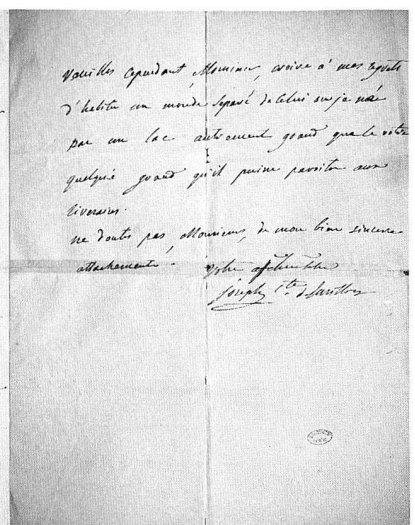 veuillez cependant, Monsieur, croire à mes regrets
d'habiter un monde séparé de celui où je
par un lac autrement grand que le votre
quelque grand qu'il puisse paroitre aux
riverains.
ne doutez pas, Monsieur, de mon bien sincere
attachement.
Votre
Joseph Cte de